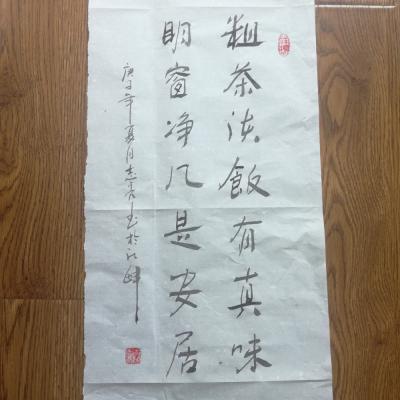 粗茶淡飯有真味
明窗净几是安居
庚子年夏月志亮书於江畔